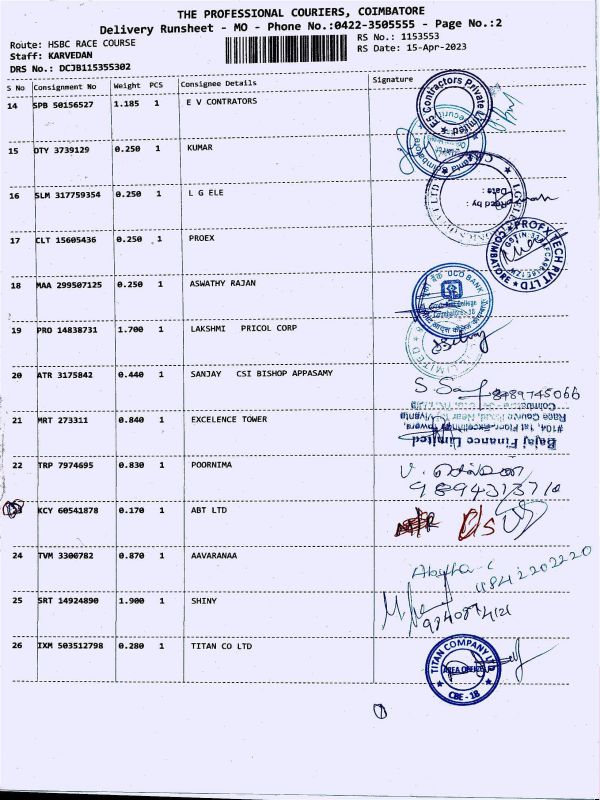 THE PROFESSIONAL COURIERS, COIMBATORE
Delivery Runsheet - MO - Phone No.:0422-3505555 - Page No.:2
Route: HSBC RACE COURSE
RS No.: 1153553
Staff: KARVEDAN
RS Date: 15-Apr-2023
DRS No.: DCJB115355302
S No Consignment No Weight PCS Consignee Details Signature
14 SPB 50156527 1.185 1 E V CONTRATORS
15 DTY 3739129 0.250 1 KUMAR
16 SLM 317759354 0.250 1 L G ELE
17 CLT 15605436 0.250 1 PROEX
18 MAA 299507125 0.250 1 ASWATHY RAJAN
19 PRO 14838731 1.700 1 LAKSHMI PRICOL CORP
20 ATR 3175842 0.440 1 SANJAY CSI BISHOP APPASAMY
21 MRT 273311 0.840 1 EXCELENCE TOWER
22 TRP 7974695 0.830 1 POORNIMA
KCY 60541878 0.170 1 ABT LTD
24 TVM 3300782 0.870 1 AAVARANAA
25 SRT 14924890 1.900 1 SHINY
26 IXM 503512798 0.280 1 TITAN CO LTD
E5 Contractors Private Limited
Recd by :
Date :
PROFX TECH PVT LTD
COIMBATORE
UCO BANK
8489745066
Bajaj Finance Limited
#104, 1st Floor, Excellence Towers,
9894313710
11842202220
TITAN COMPANY LTD
AREA OFFICE
CBE - 18